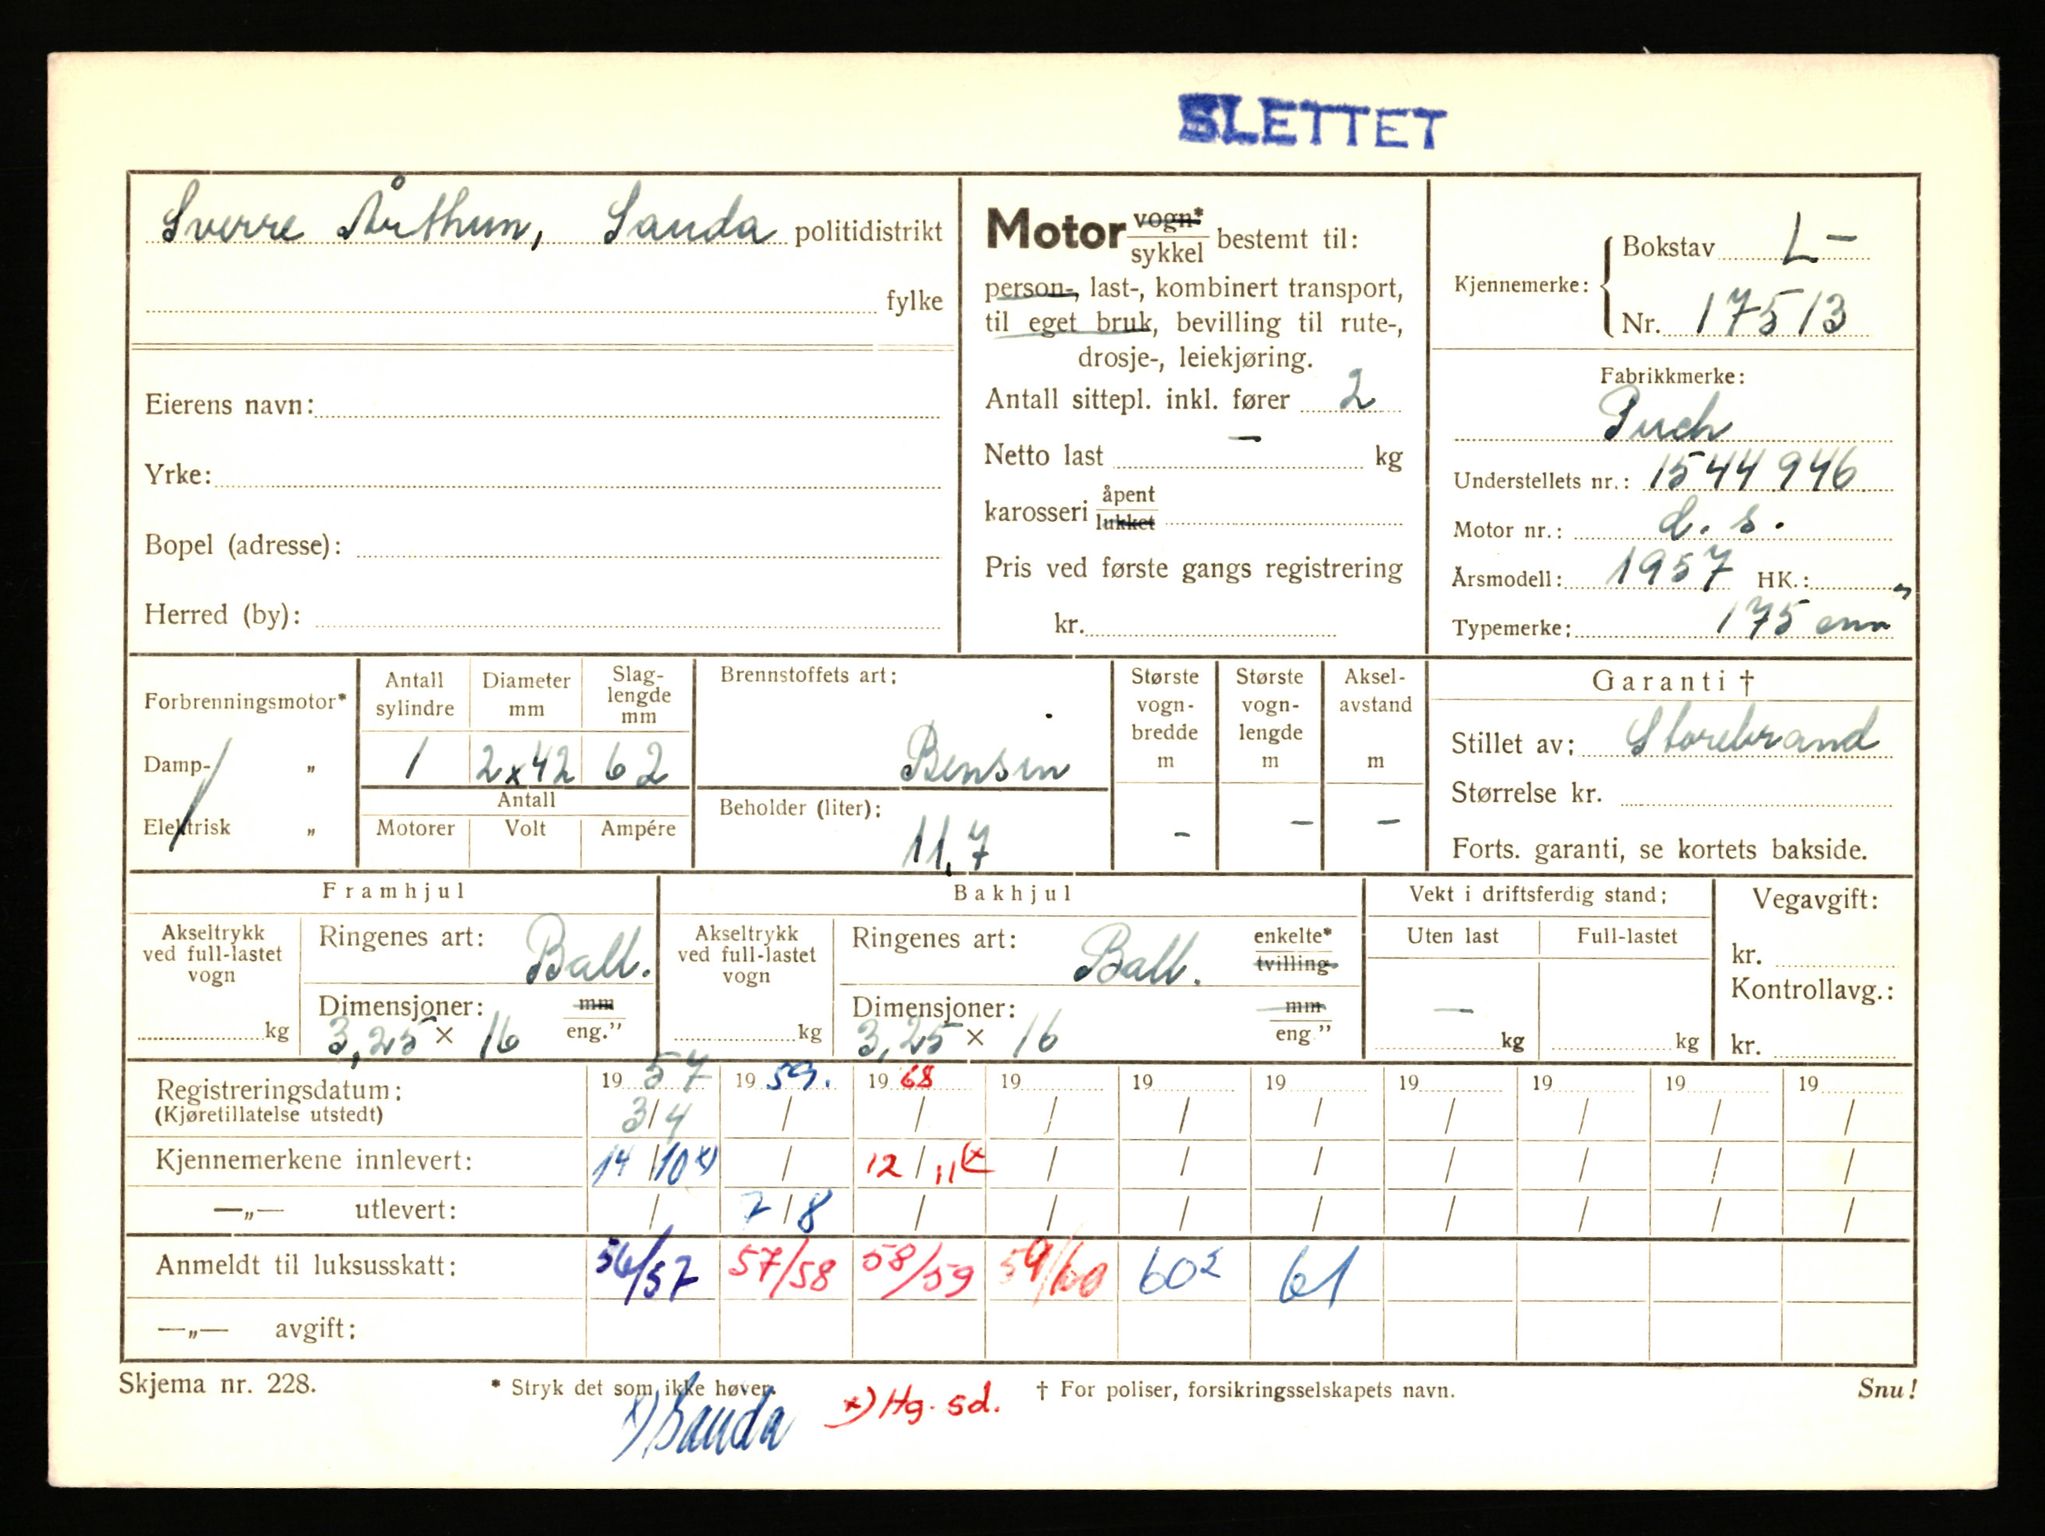 SLETTET
Sverre Århun, Sauda politidistrikt
fylke
Eierens navn:
Yrke:
Bopel (adresse):
Herred (by):
Motor vogn* sykkel bestemt til:
person-, last-, kombinert transport,
til eget bruk, bevilling til rute-,
drosje-, leiekjøring.
Antall sittepl. inkl. fører 2
Netto last – kg
karosseri åpent lukket
Pris ved første gangs registrering
kr.
Kjennemerke: Bokstav L-
Nr. 17513
Fabrikkmerke:
Puch
Understellets nr.: 1544946
Motor nr.: d. s.
Årsmodell: 1957 HK.:
Typemerke: 175 cm³
Forbrenningsmotor*
Damp- „
Elektrisk „
Antall sylindre 1
Diameter mm 2x42
Slaglengde mm 62
Antall
Motorer Volt Ampére
Brennstoffets art:
Bensin
Beholder (liter):
11,7
Største vogn-bredde m –
Største vogn-lengde m –
Aksel-avstand m –
Garanti †
Stillet av: Storebrand
Størrelse kr.
Forts. garanti, se kortets bakside.
Framhjul
Akseltrykk ved full-lastet vogn
kg
Ringenes art: Ball.
Dimensjoner: mm
3,25 × 16 eng.”
Bakhjul
Akseltrykk ved full-lastet vogn
kg
Ringenes art: Ball. enkelte* tvilling
Dimensjoner: mm
3,25 × 16 eng.”
Vekt i driftsferdig stand:
Uten last Full-lastet
— kg kg
Vegavgift:
kr.
Kontrollavg.:
kr.
Registreringsdatum: 19 57 19 59. 19 68 19 19 19 19 19 19 19
(Kjøretillatelse utstedt) 3/4 / / / / / / / / /
Kjennemerkene innlevert: 14/10 x) / 12/11 (x / / / / / / /
—„— utlevert: / 7/8 / / / / / / / /
Anmeldt til luksusskatt: 56/57 57/58 58/59 59/60 60² 61
—„— avgift:
Skjema nr. 228. * Stryk det som ikke høver. † For poliser, forsikringsselskapets navn. Snu!
x) Sauda x) Hg. sd.